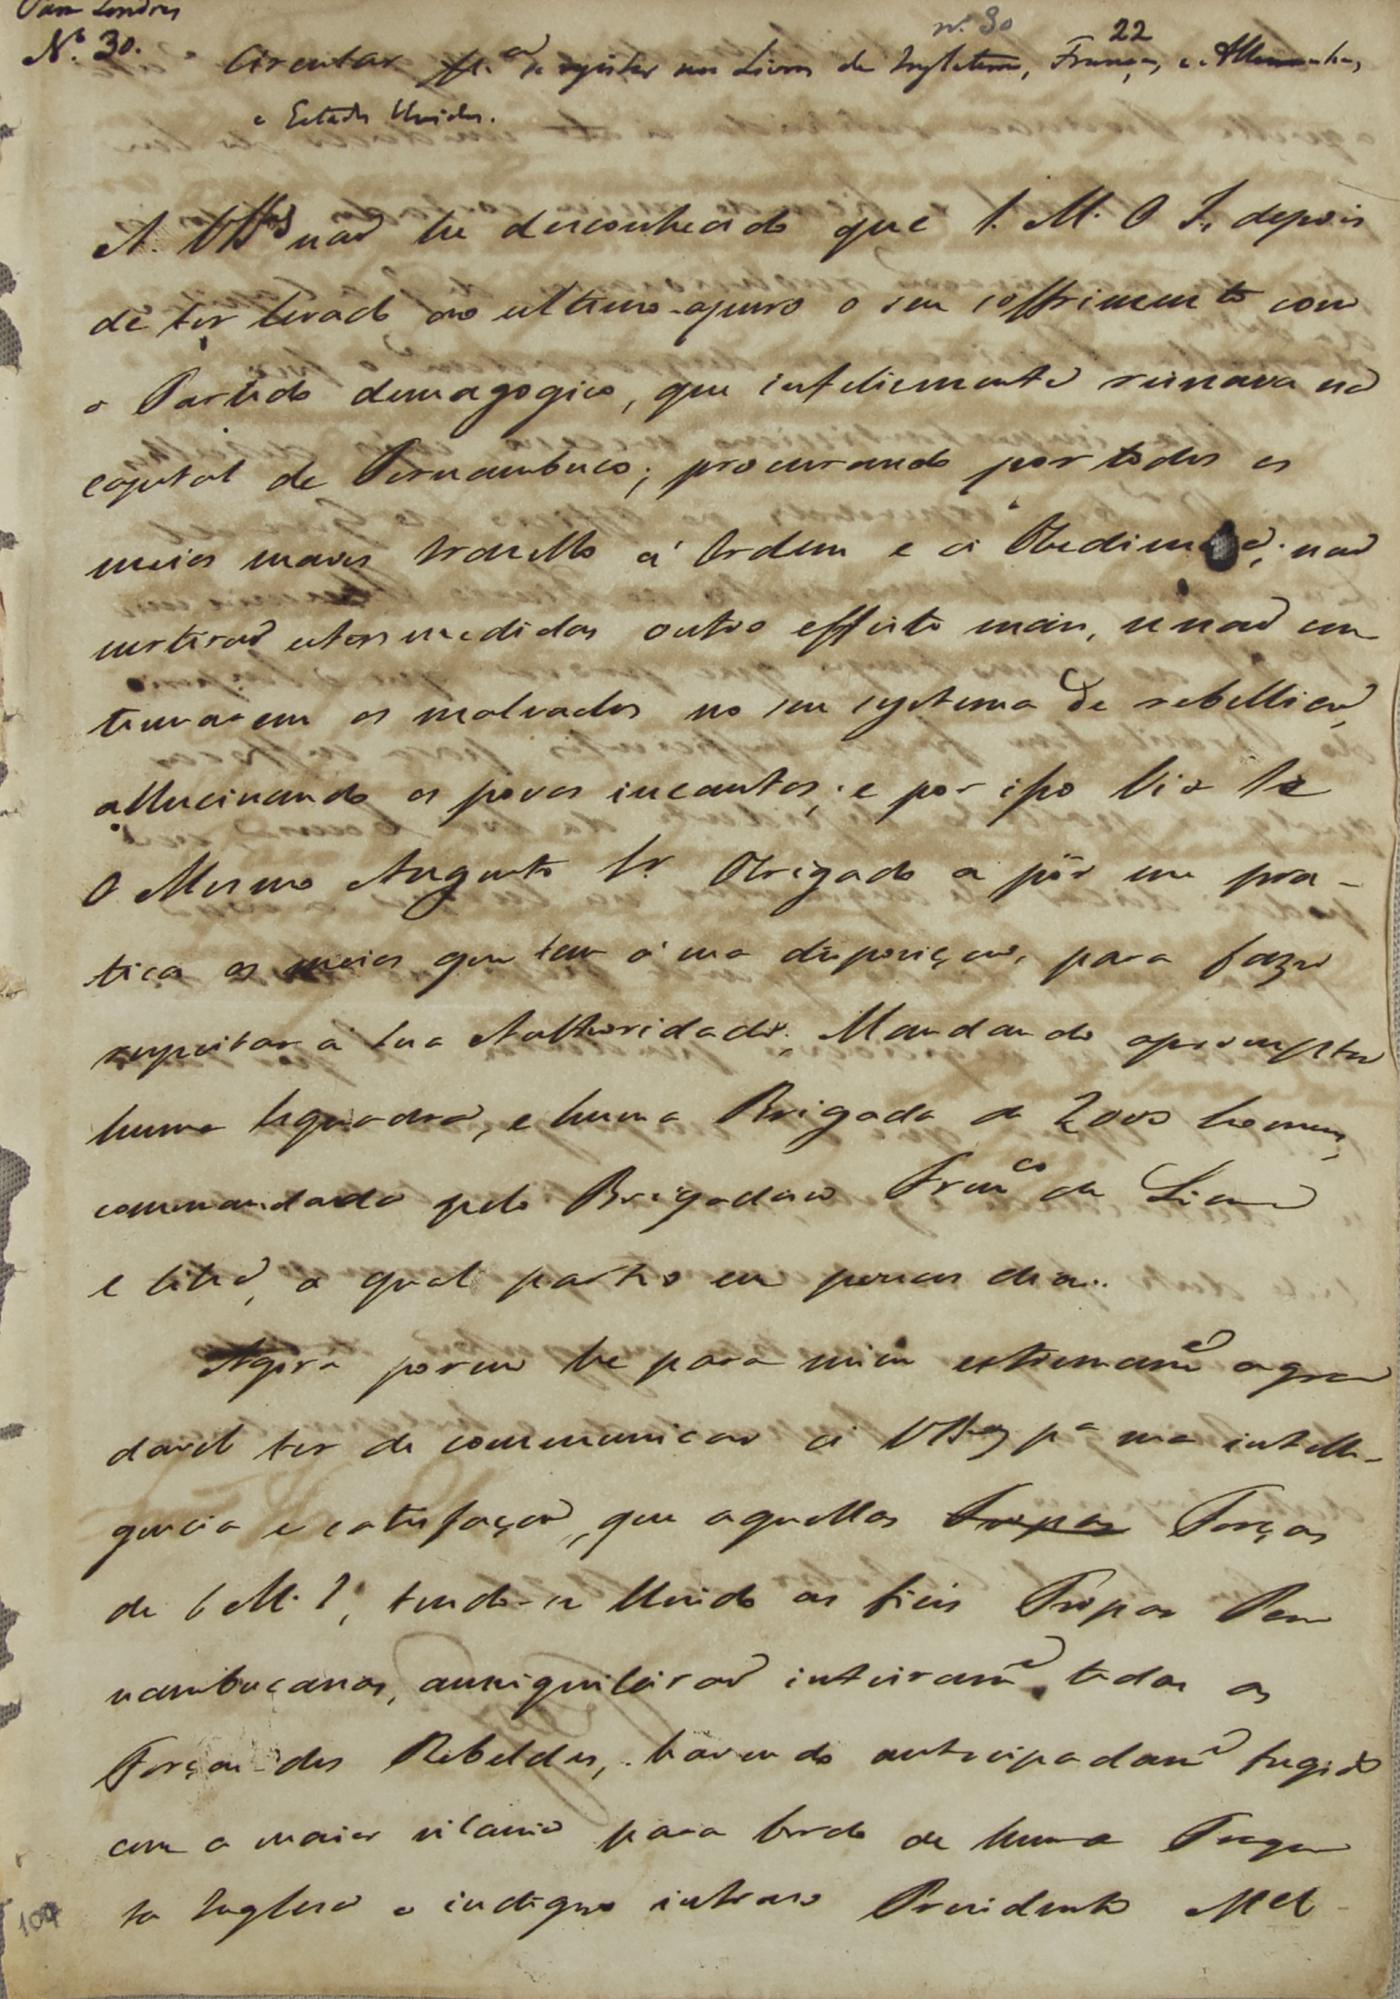 Para Londres
Nº 30.
nº 30
22
Circular p.ª se registar nos Livros de Inglaterra, França, e Allemanha,
e Estados Unidos.
A VSas não he desconhecido que S. M. O I., depois
de ter levado ao ultimo apuro o seu soffrimento com
o Partido demagogico, que infelismente reinava na
capital de Pernambuco; procurando por todos os
meios suaves trazello á Ordem e á Obediencia; não
surtirão estas medidas outro effeito mais, senão con
tinuarem os malvados no seu systema de rebellião,
allucinando os povos incautos; e por isso Vio Se
O Mesmo Augusto Sr. Obrigado a pôr em pra-
tica os meios que tem á sua disposição, para fazer
respeitar a Sua Authoridade; Mandando apromptar
huma Esquadra, e huma Brigada de 2000 homens,
commandada pelo Brigadeiro Franco de Lima
e Silva, a qual partio em poucos dias.
Agora porem he para mim extremame agra
davel ter de communicar á VSas pª sua intelli-
gencia e satisfação, que aquellas Tropas Forças
de S. M. I., tendo-se Unido as fieis Tropas Per
nambucanas, anniquilárão inteirame todas as
Forças dos Rebeldes, havendo antecipadame fugido
com a maior vilania para bordo de huma Fraga
ta Ingleza o indigno intruso Presidente Mel-
104